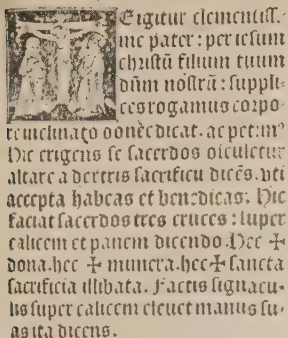 E igitur clementiss.
me pater: per iesum
christū filium tuum
dn̄m nostrū: suppli
ces rogamus corpo
re inclinato donec dicat. ac petim⁹
Hic erigens se sacerdos osculetur
altare a dextris sacrificii dicēs. vti
accepta habeas et benedicas. Hic
faciat sacerdos tres cruces: super
calicem et panem dicendo. Hec ✠
dona. hec ✠ munera. hec ✠ sancta
sacrificia illibata. Factis signacu-
lis super calicem eleuet manus su-
as ita dicens.